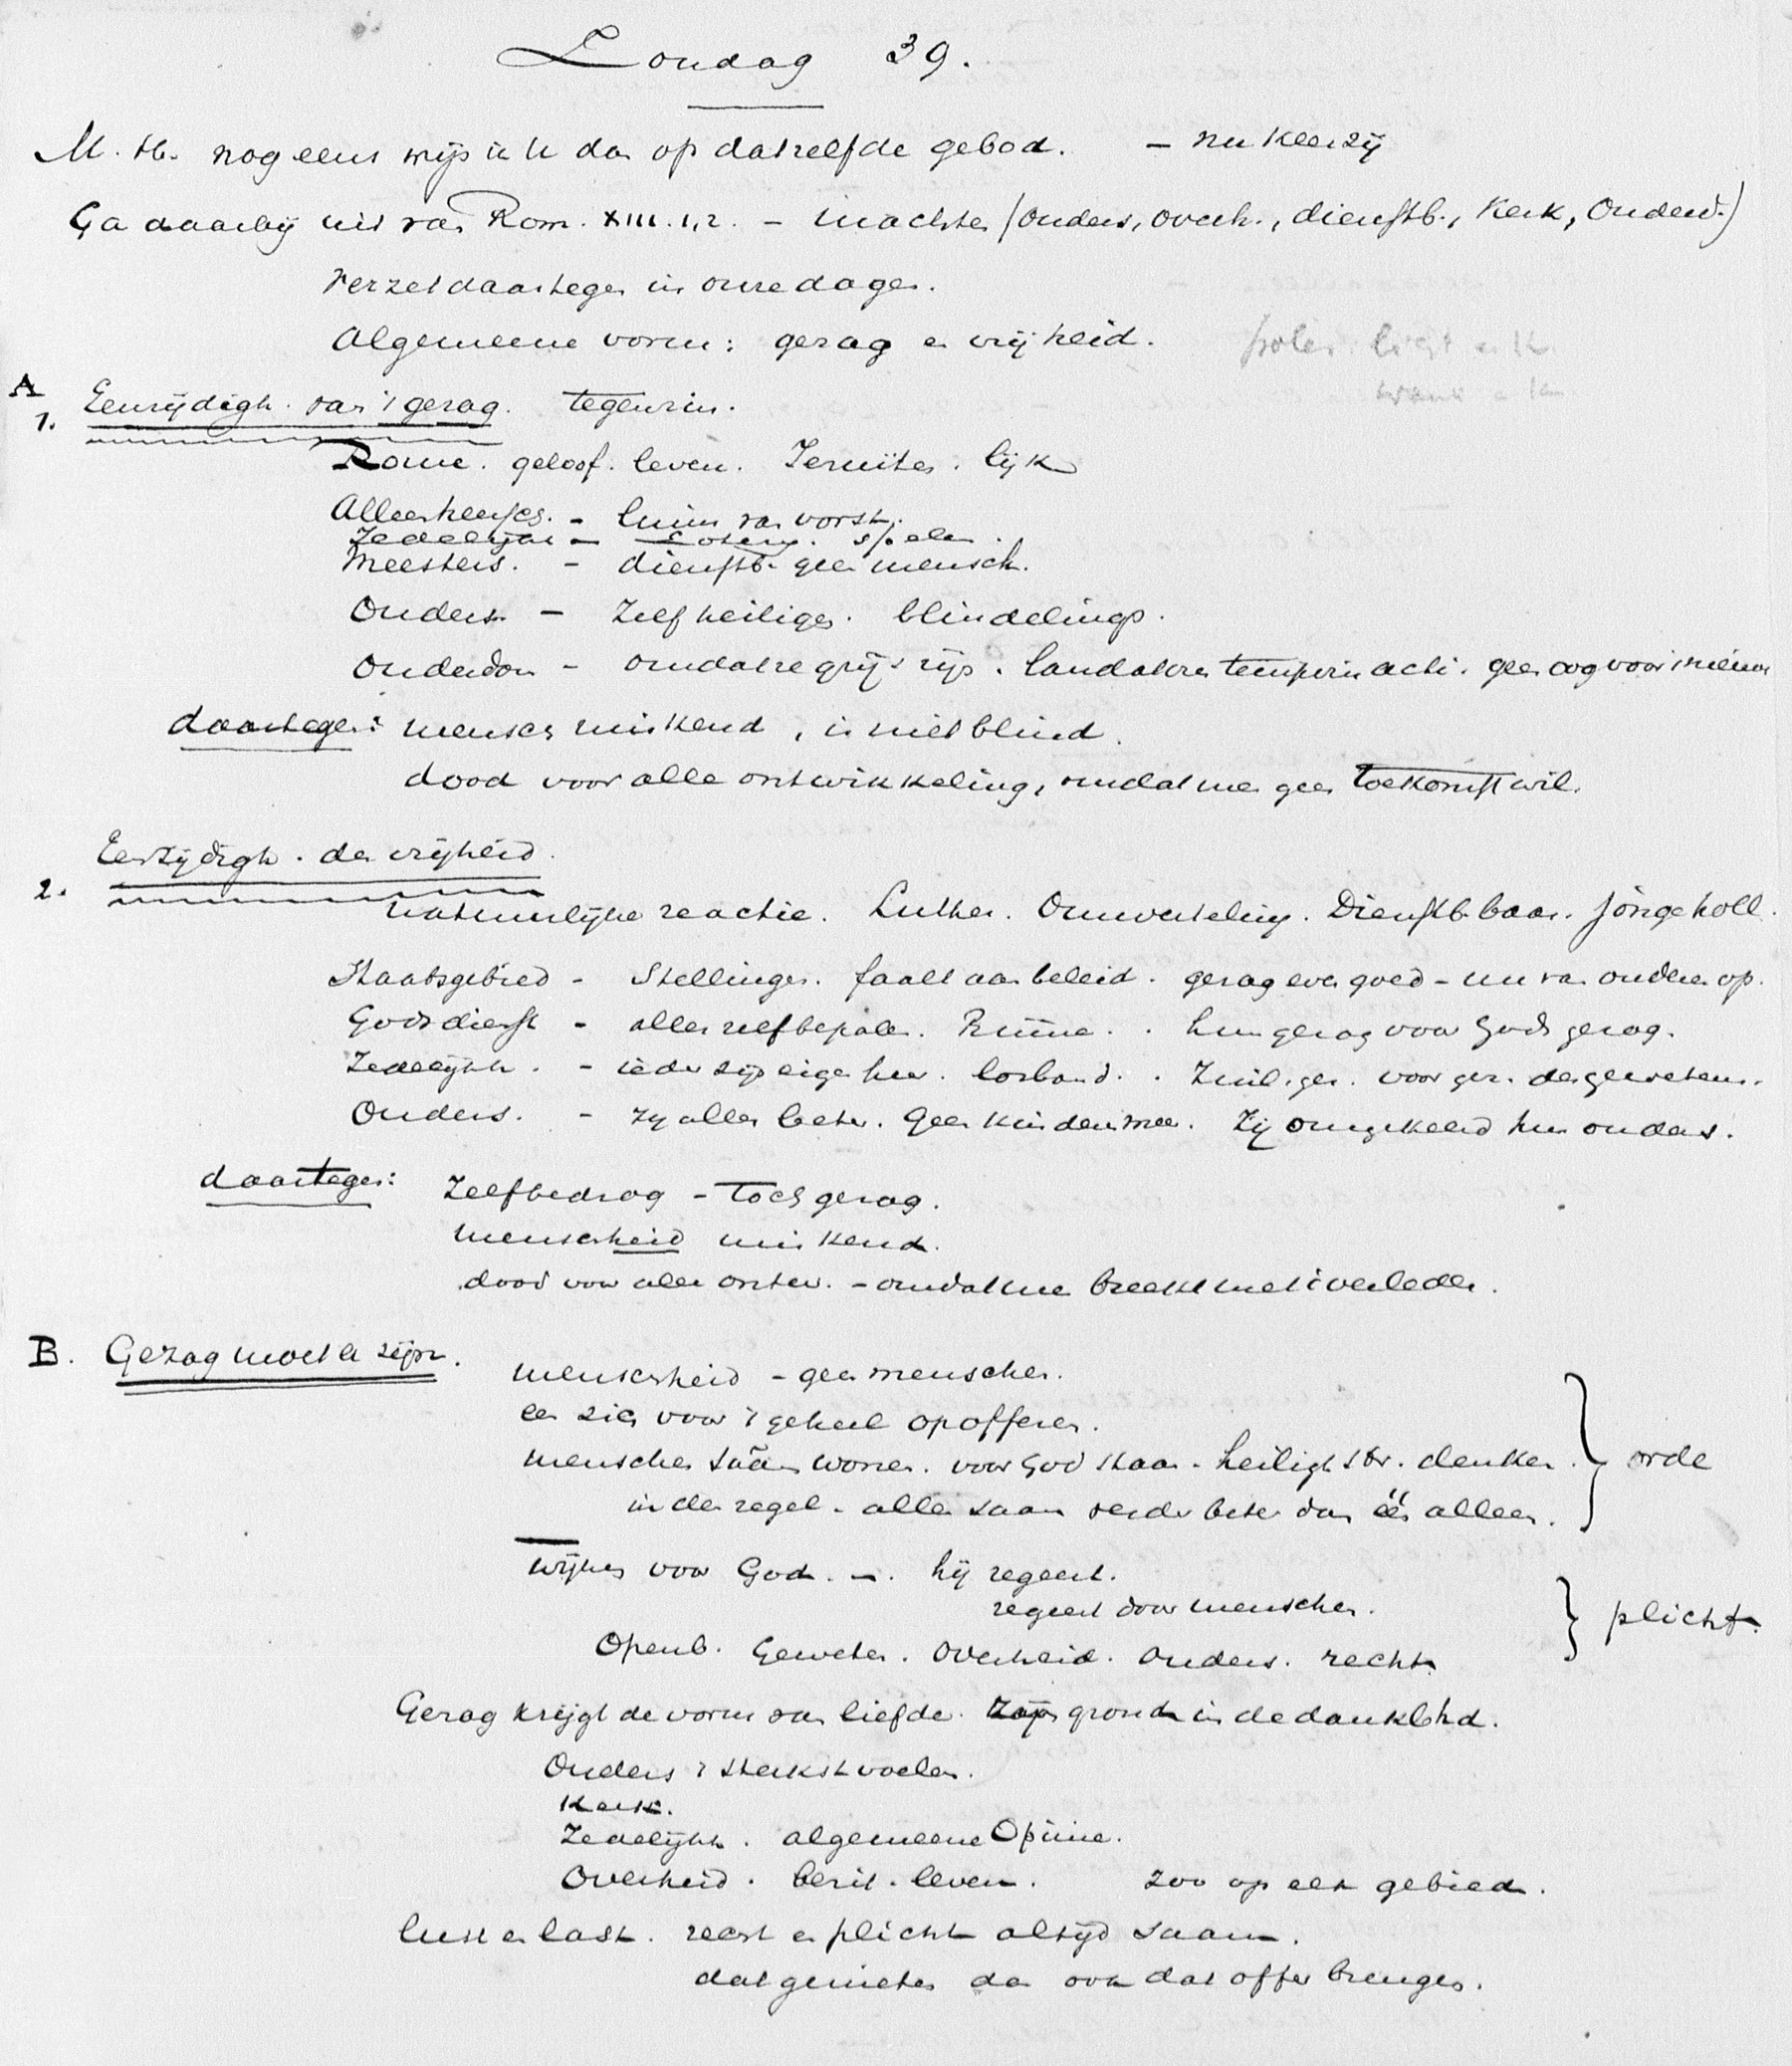 Zondag 39.
M. H. nog eens wijs ik U dan op datzelfde gebod. – nu keerzij
Ga daarbij uit van Rom. XIII. 1,2. – machten (Ouders, overh., dienstb., Kerk, Ouderd.)
Verzet daartegen in onze dagen.
Algemeene vorm: gezag en vrijheid.
A
1. Eenzijdigh. van 't gezag. tegenzin.
Rome. geloof. leven. Jezuïten. lijk
Alleenheersch. – luim van vorst.
Zedelijkh – spelen.
Meesters. – dienstb. geen mensch.
Ouders – Zelf heiligen. blindelings.
Ouderdom – omdat ze grijs zijn. laudatores temporis acti. geen oog voor 't nieuwe
daartegen: mensch miskend, is niet blind.
dood voor alle ontwikkeling, omdat men geen toekomst wil.
Eenzijdigh. der vrijheid.
2. natuurlijke reactie. Luther. Omwenteling. Dienstb. baas. jonge holl.
Staatsgebied – Stellingen. faalt aan beleid. gezag even goed – nu van onderen op.
Godsdienst – allen zelf bepalen. hun gezag voor Gods gezag.
Zedelijkh. – ieder zijn eigen heer. losband. voor gez. des gewetens.
Ouders. – Zij allen beter. Geen kinderen meer. Zij omgekeerd hun ouders.
daartegen: Zelfbedrog – toch gezag.
menschheid miskend.
dood voor alle ontw. – omdat men breekt met 't verleden.
B. Gezag moet er zijn.
menschheid – geen menschen.
een zich voor 't geheel opofferen.
menschen saam wonen. voor God staan. heiligh. denken.
in den regel – allen saam verder beter dan één alleen.
orde
wijken voor God. –. hij regeert.
regeert door menschen.
Openb. Geweten. Overheid. Ouders. recht.
plicht.
Gezag krijgt de vorm van liefde. zijn grond in de dankbhd.
Ouders 't sterkst voelen.
Kerk.
Zedelijkh. algemeene Opinie.
Overheid. bezit. leven. zoo op elk gebied.
lust en last. recht en plicht altijd saam.
dat genieten dan ook dat offer brengen.